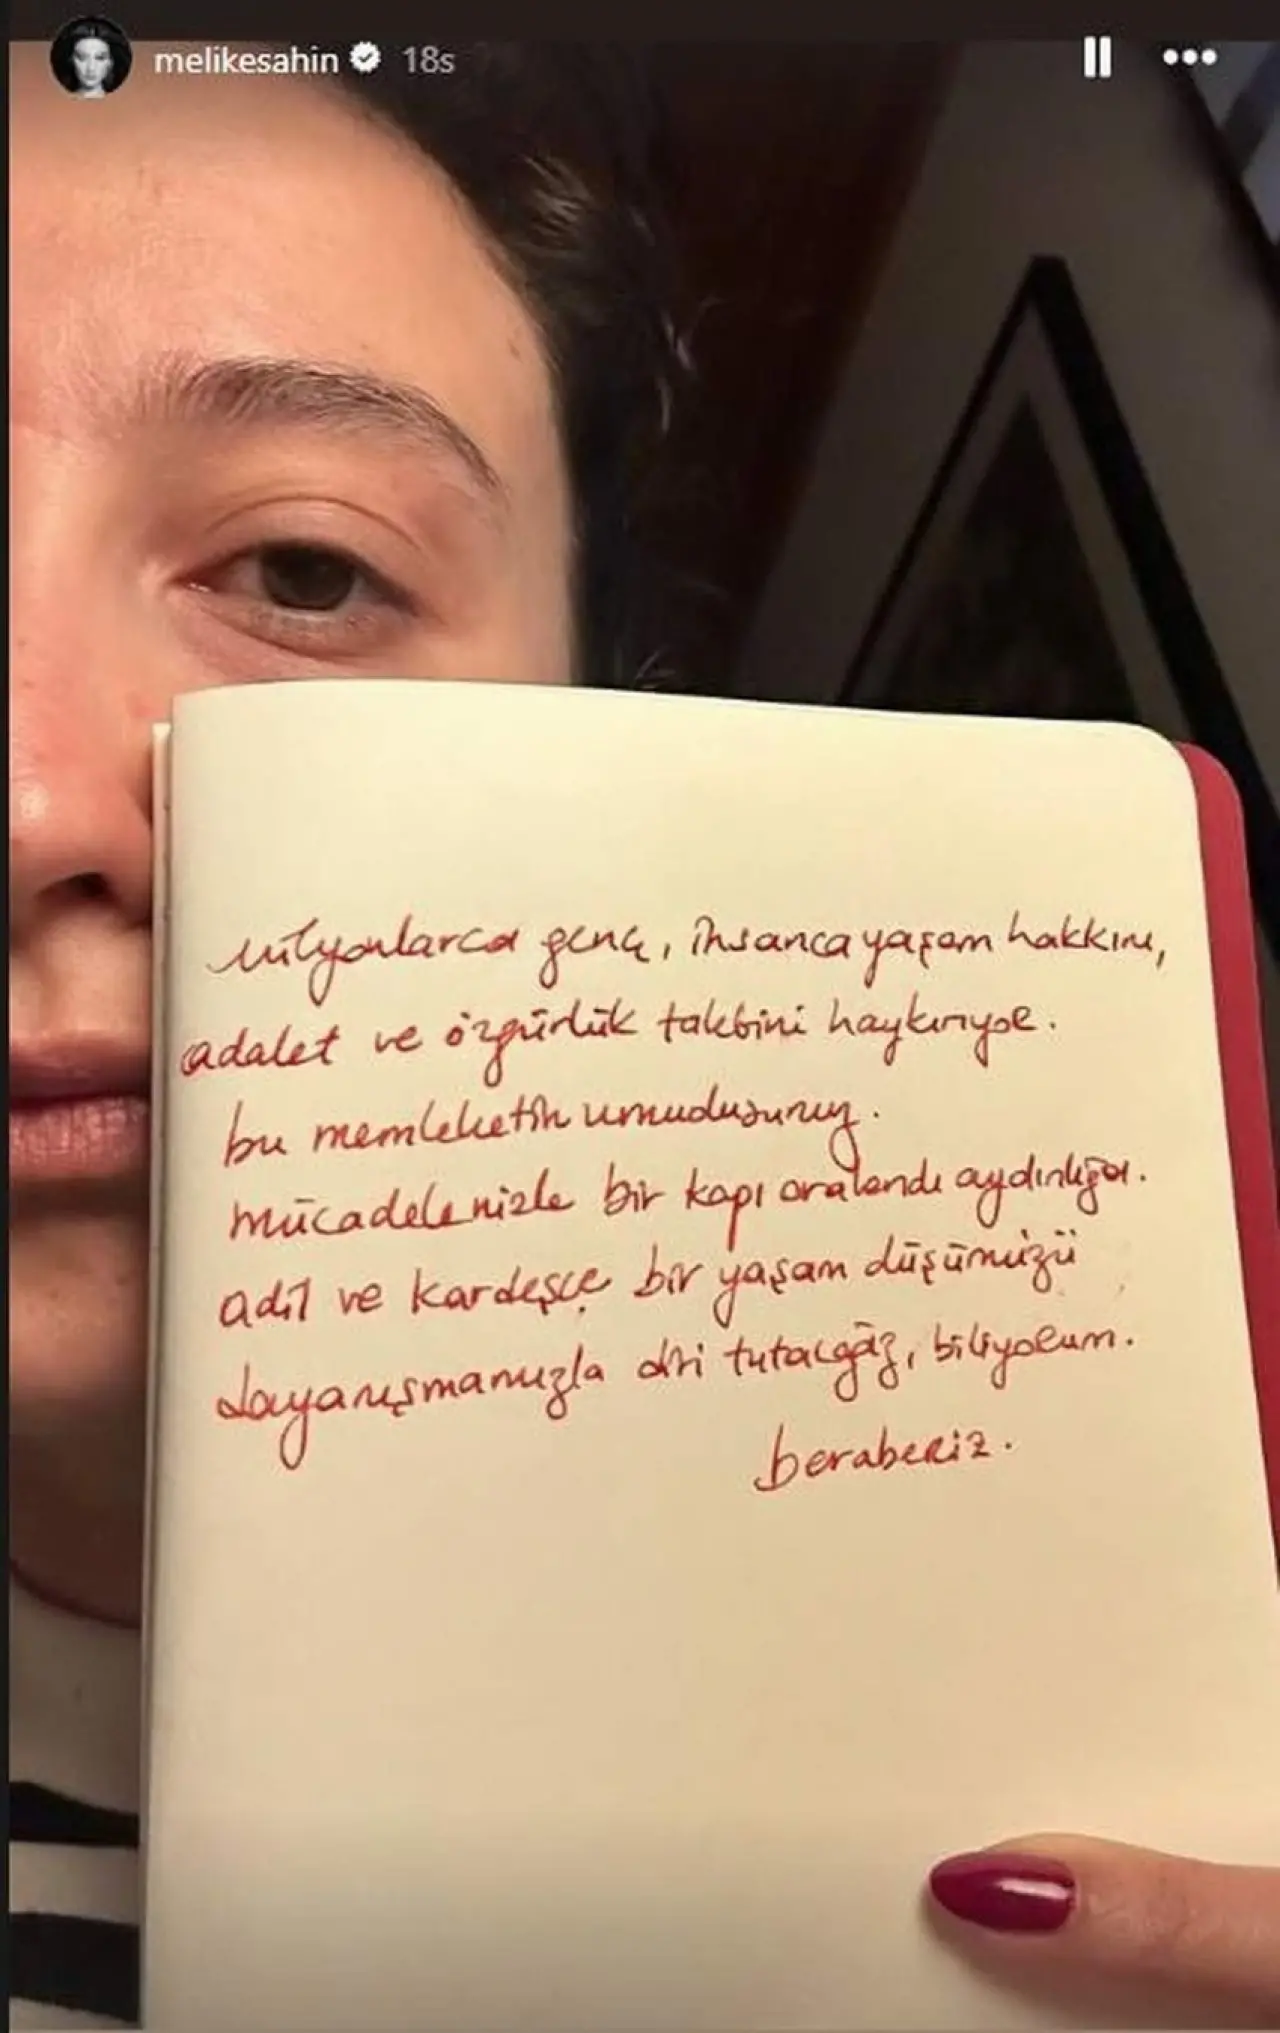 melikesahin 18s
milyonlarca genç, insanca yaşam hakkını,
adalet ve özgürlük talebini haykırıyor.
bu memleketin umudusunuz.
mücadelenizle bir kapı aralandı aydınlığa.
adil ve kardeşçe bir yaşam düşümüzü
dayanışmamızla diri tutacağız, biliyorum.
beraberiz.